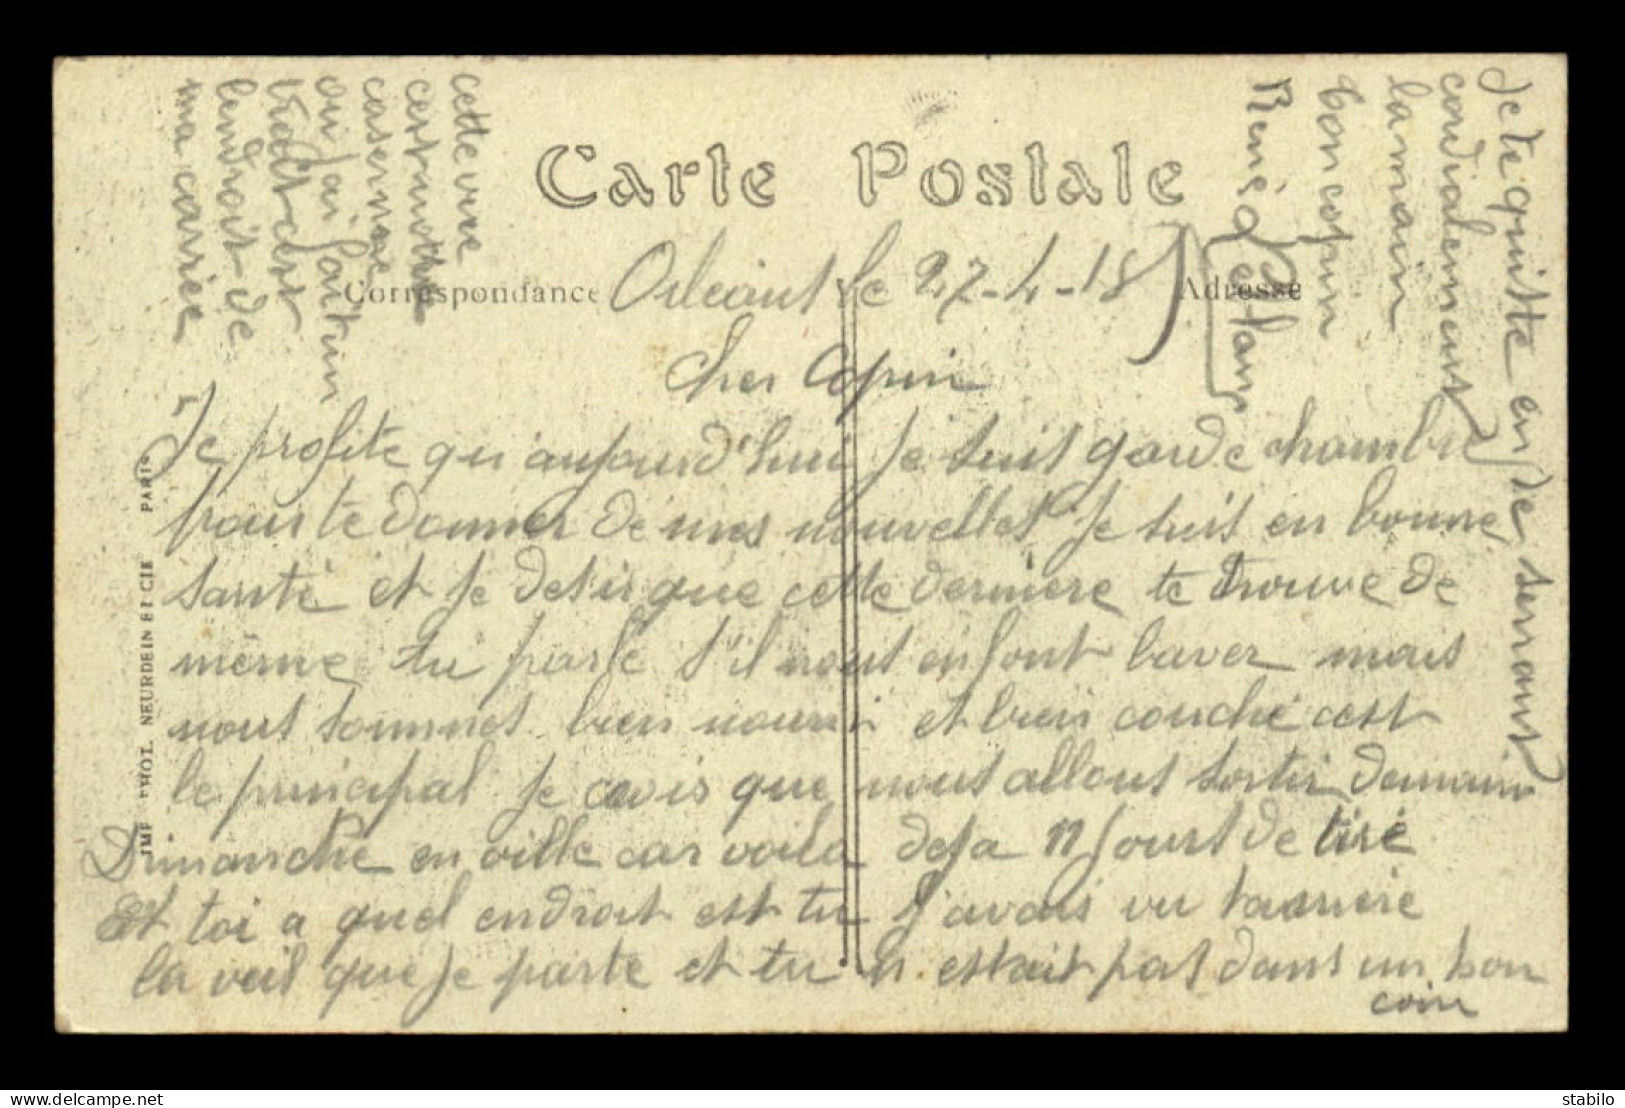 Carte Postale
Correspondance
Adresse
Orleans le 27-4-18
Cher Copin
Je profite qu'aujourd'hui Je suis garde chambre
pour te donner de mes nouvelles Je suis en bonne
santé et Je desir que cette dernière te trouve de
même tu parle s'il nous en font baver mais
nous sommes bien nourri et bien couché cest
le principal Je crois que nous allons sortir demain
Dimanche en ville car voila deja 11 Jours de tiré
Et toi a quel endroit est tu J'avais vu ta mère
la veil que Je parte et tu n'estait pas dans un bon
coin
Je te quitte en te serrant
cordialement
la main
ton copin
René
cette vue
cest notre
caserne
ou J'ai fait un
trait cest
lendroit de
ma carrée
IMP. PHOT. NEURDEIN ET CIE PARIS
stabilo